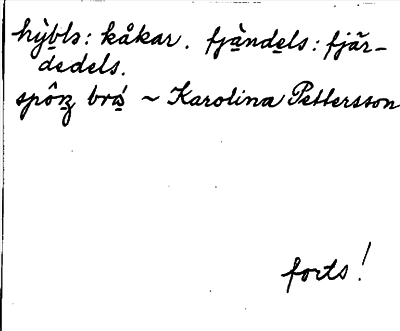 hỳb̲ls: kåkar. fjàṉde̲ls: fjär-
dedels.
spôrz̲ brá̲ ~ Karolina Pettersson
forts!